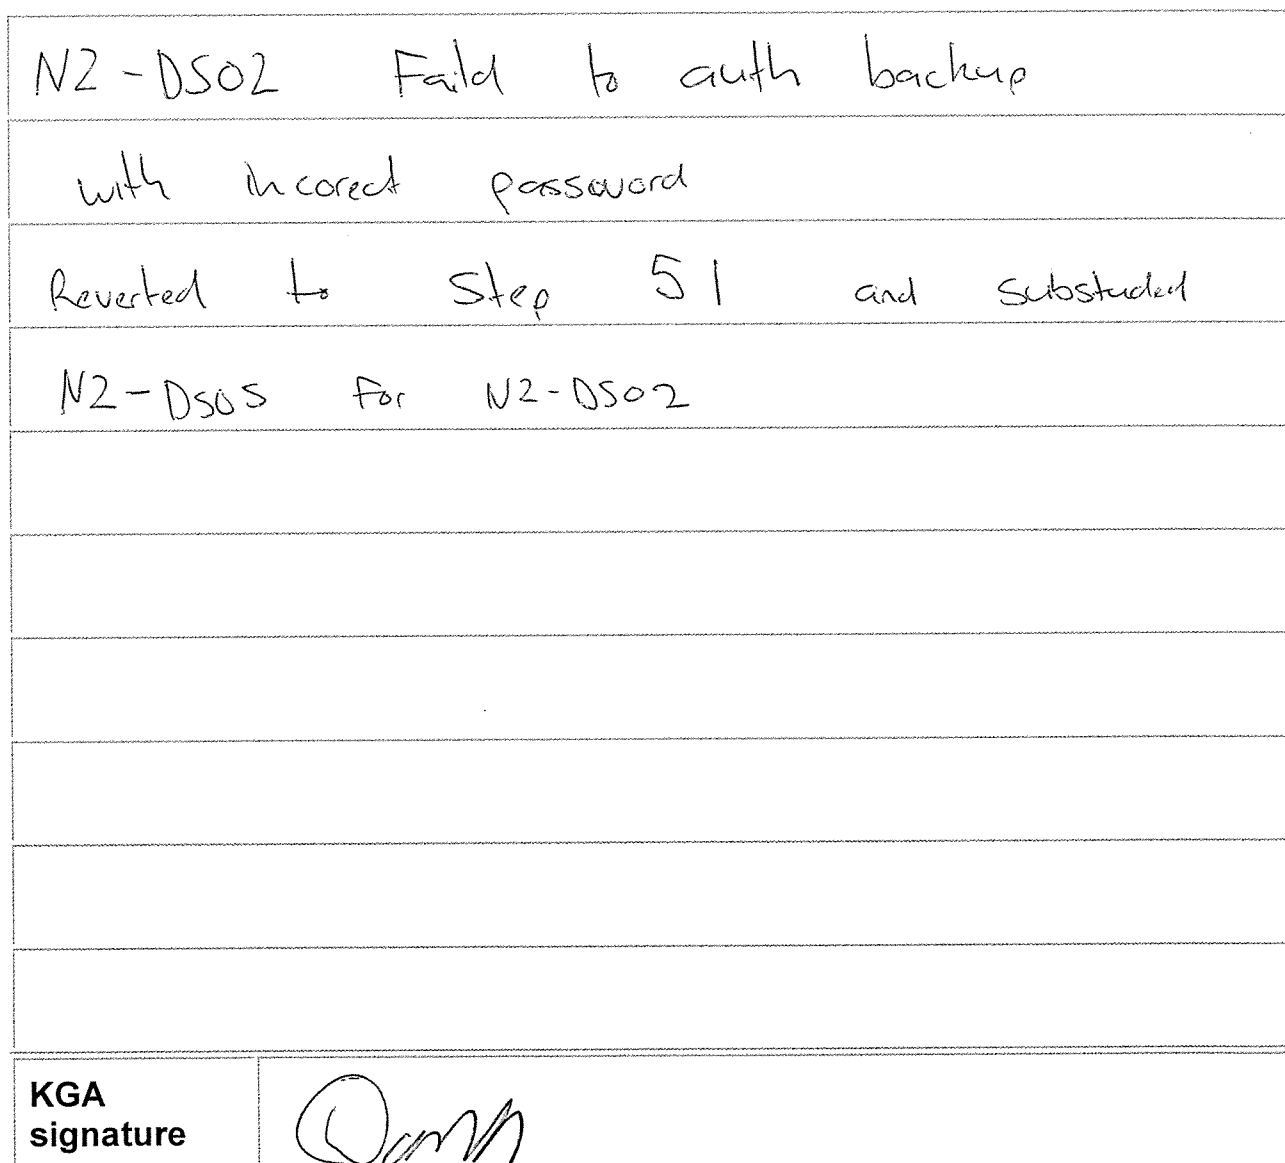 N2-DS02 Faild to auth backup
with incorect password
Reverted to Step 51 and substuded
N2-DS05 for N2-DS02
KGA
signature